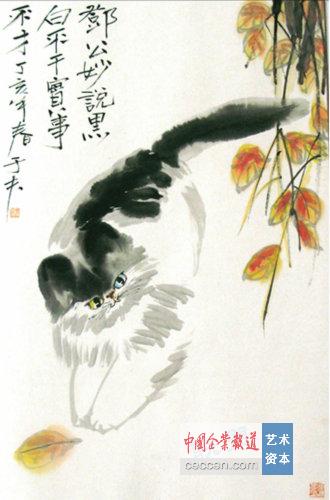 鄧公妙說黑
白平干實事
不才丁亥年春
中國企業報道
ceccen.com
艺术
资本